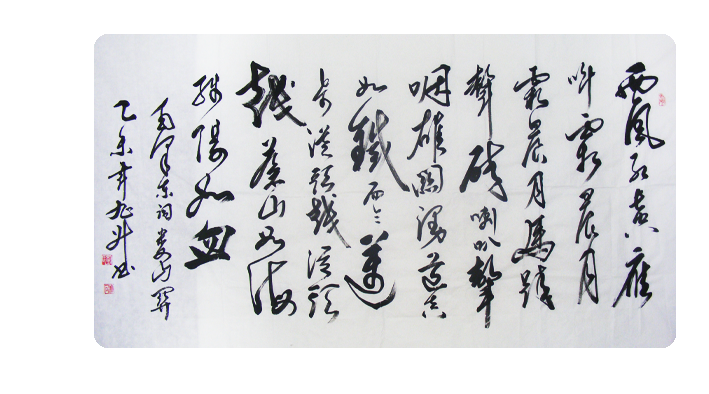 西風烈長空雁
叫霜晨月
霜晨月馬蹄
聲碎喇叭聲
咽雄關漫道真
如鐵而今邁
步從頭越從頭
越蒼山如海
殘陽如血
毛澤東詞婁山關
乙未